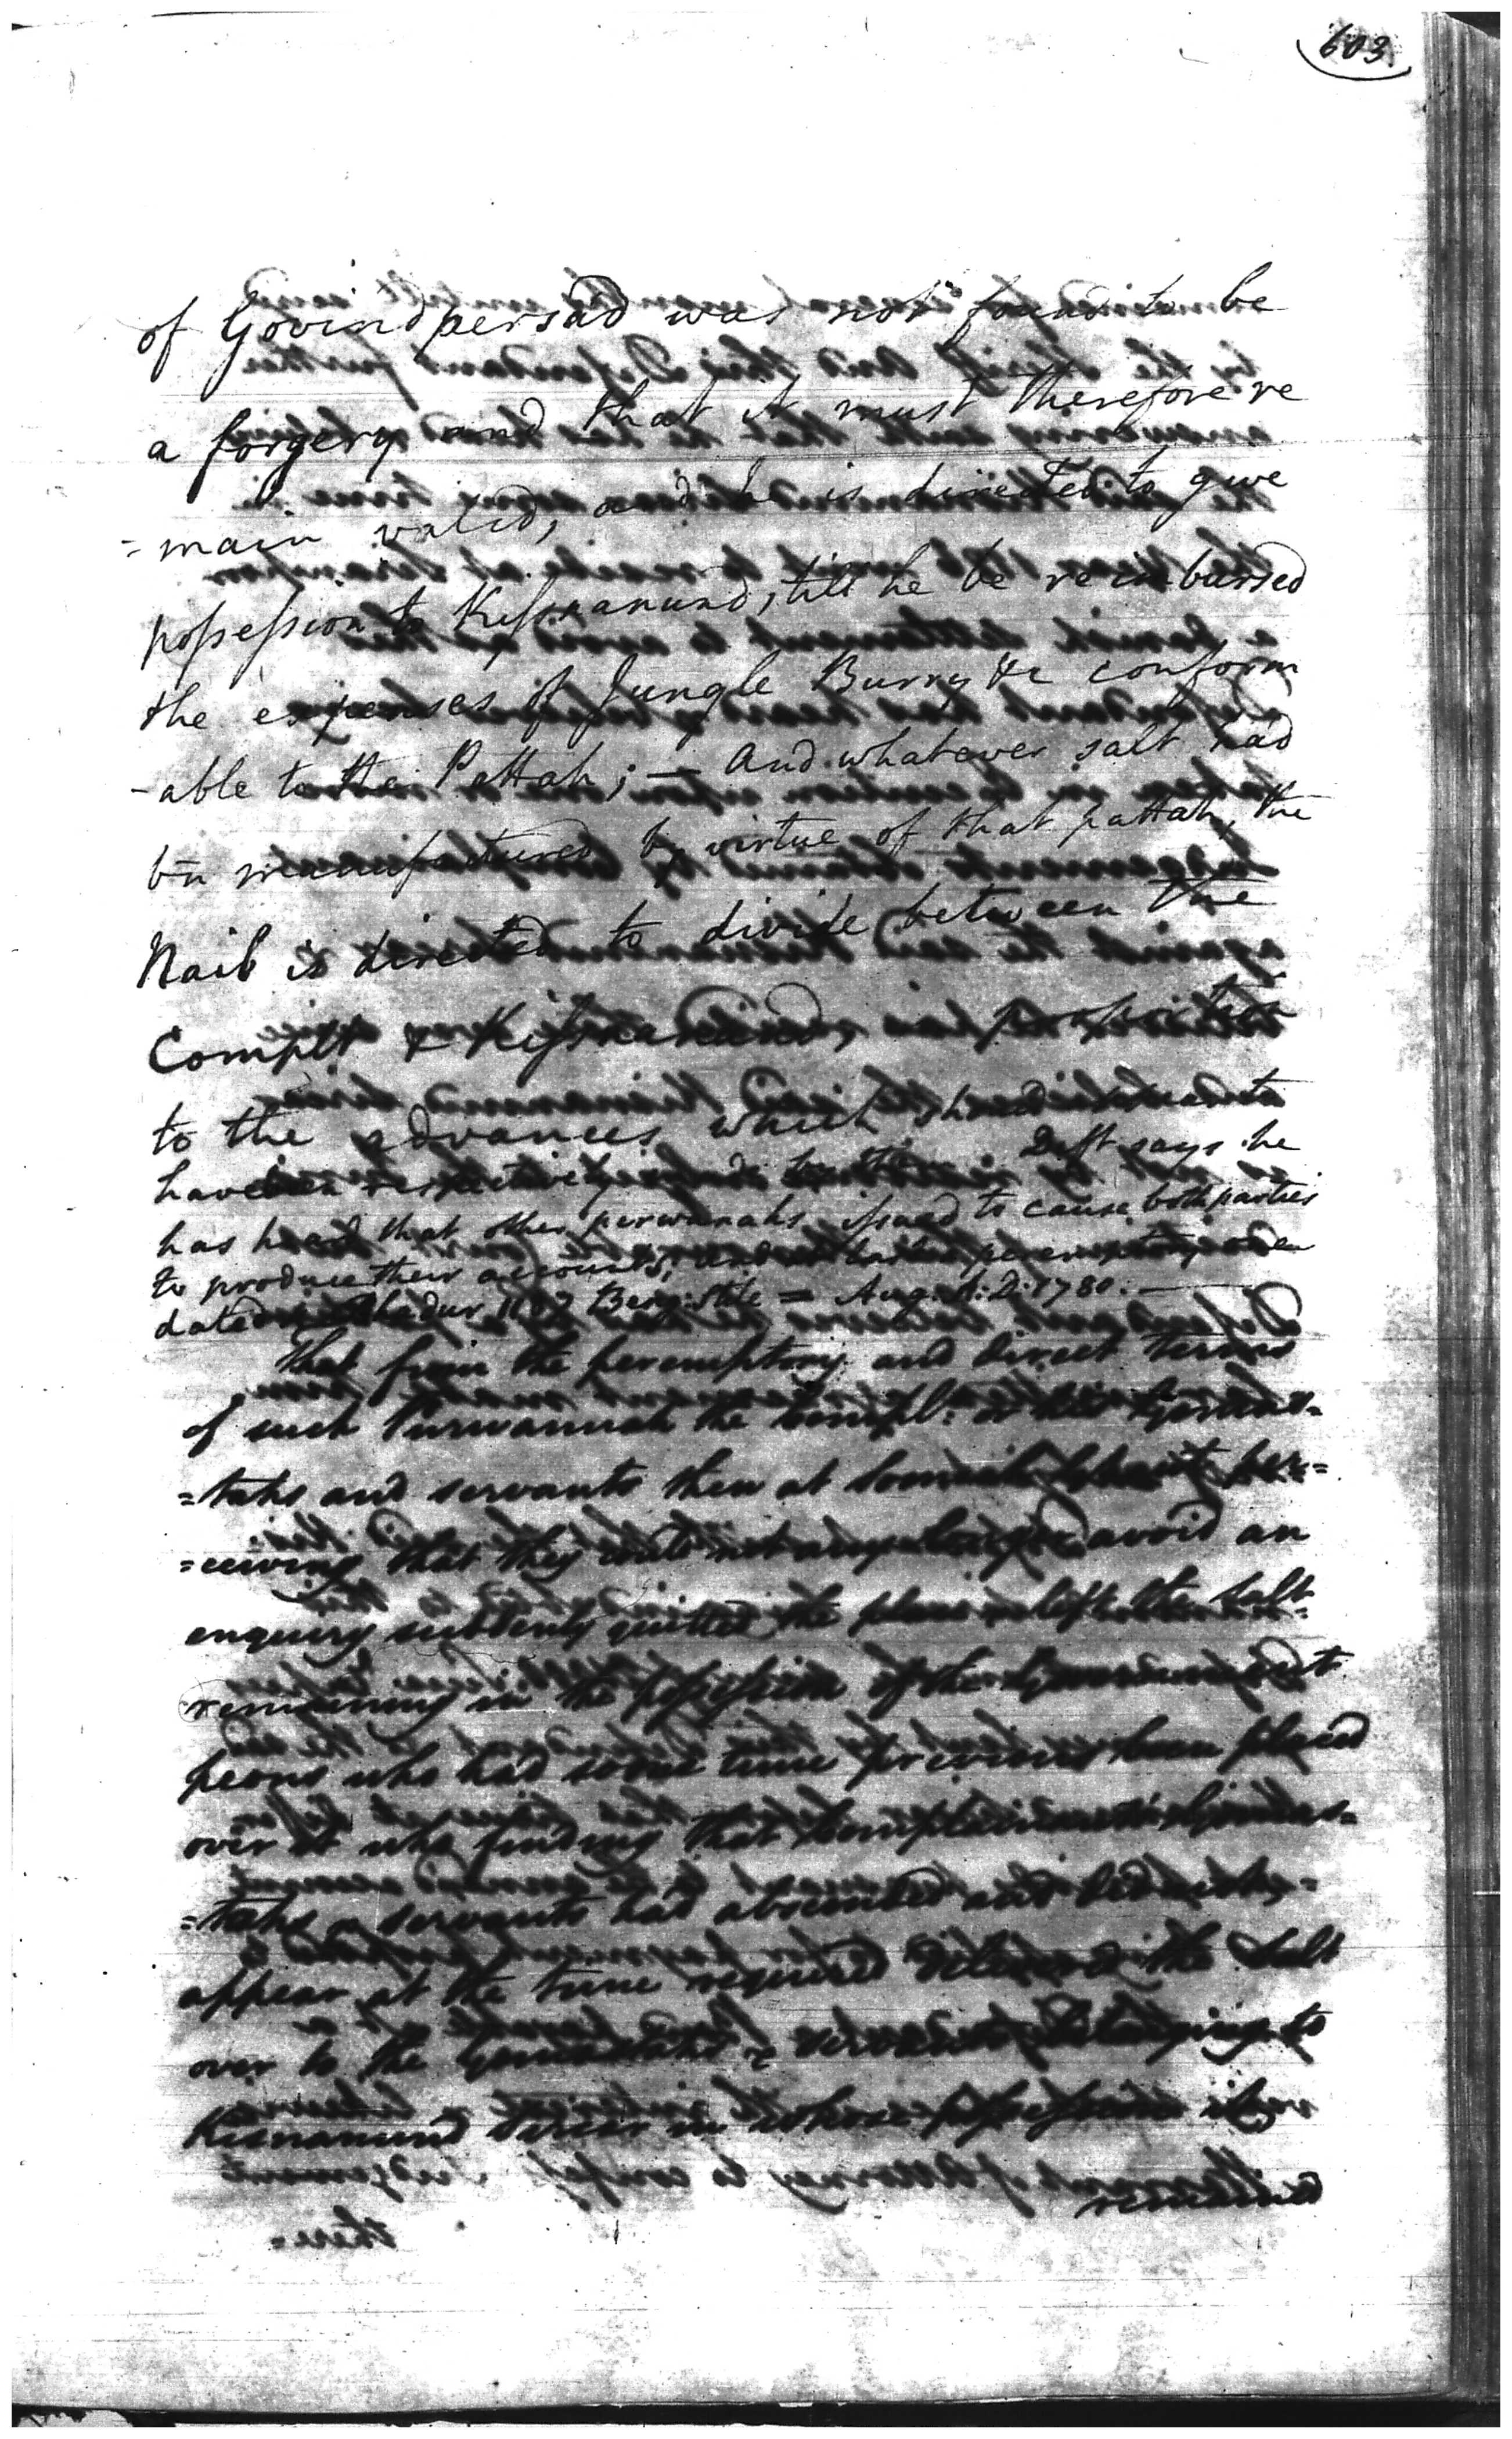 603
of Govindpersad was not found to be
a forgery and that it must therefore re
=main valid, and he is directed to give
possession to Kissnanund, till he be reimbursed
the expenses of Jungle Burry &c conform
-able to the Pattah; — And whatever salt had
bn manufactured by virtue of that pattah, the
Naib is directed to divide between the
Complt & Kissnanund,
to the advances which should
have been respectively made by them Deft says he
has heard that other perwanahs issued to cause both parties
to produce their accounts, and peremptory one
dated Bhadur 1187 Beng: Stile = Aug: A: D: 1780. —
That from the peremptory and direct terms
of such Purwannah the Compl: or his Gomas=
=tahs and servants then at per=
=ceiving that they could not any longer avoid an
enquiry suddenly quitted the place & left the Salt
remaining in the possession of the Government
peons who had some time previous been placed
over it who finding that Complainants Gomas=
=tahs & servants had absconded and did not
appear at the time required delivered the Salt
over to the Gomastahs & servants belonging to
Kisnanund in whose possession it
remained